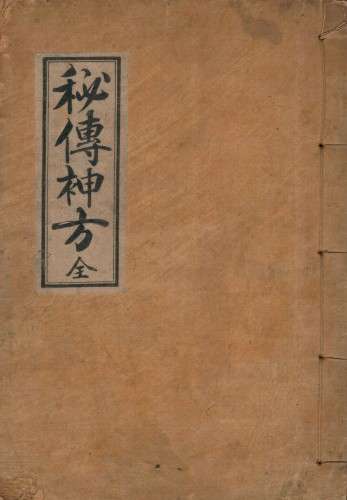 秘傳神方全